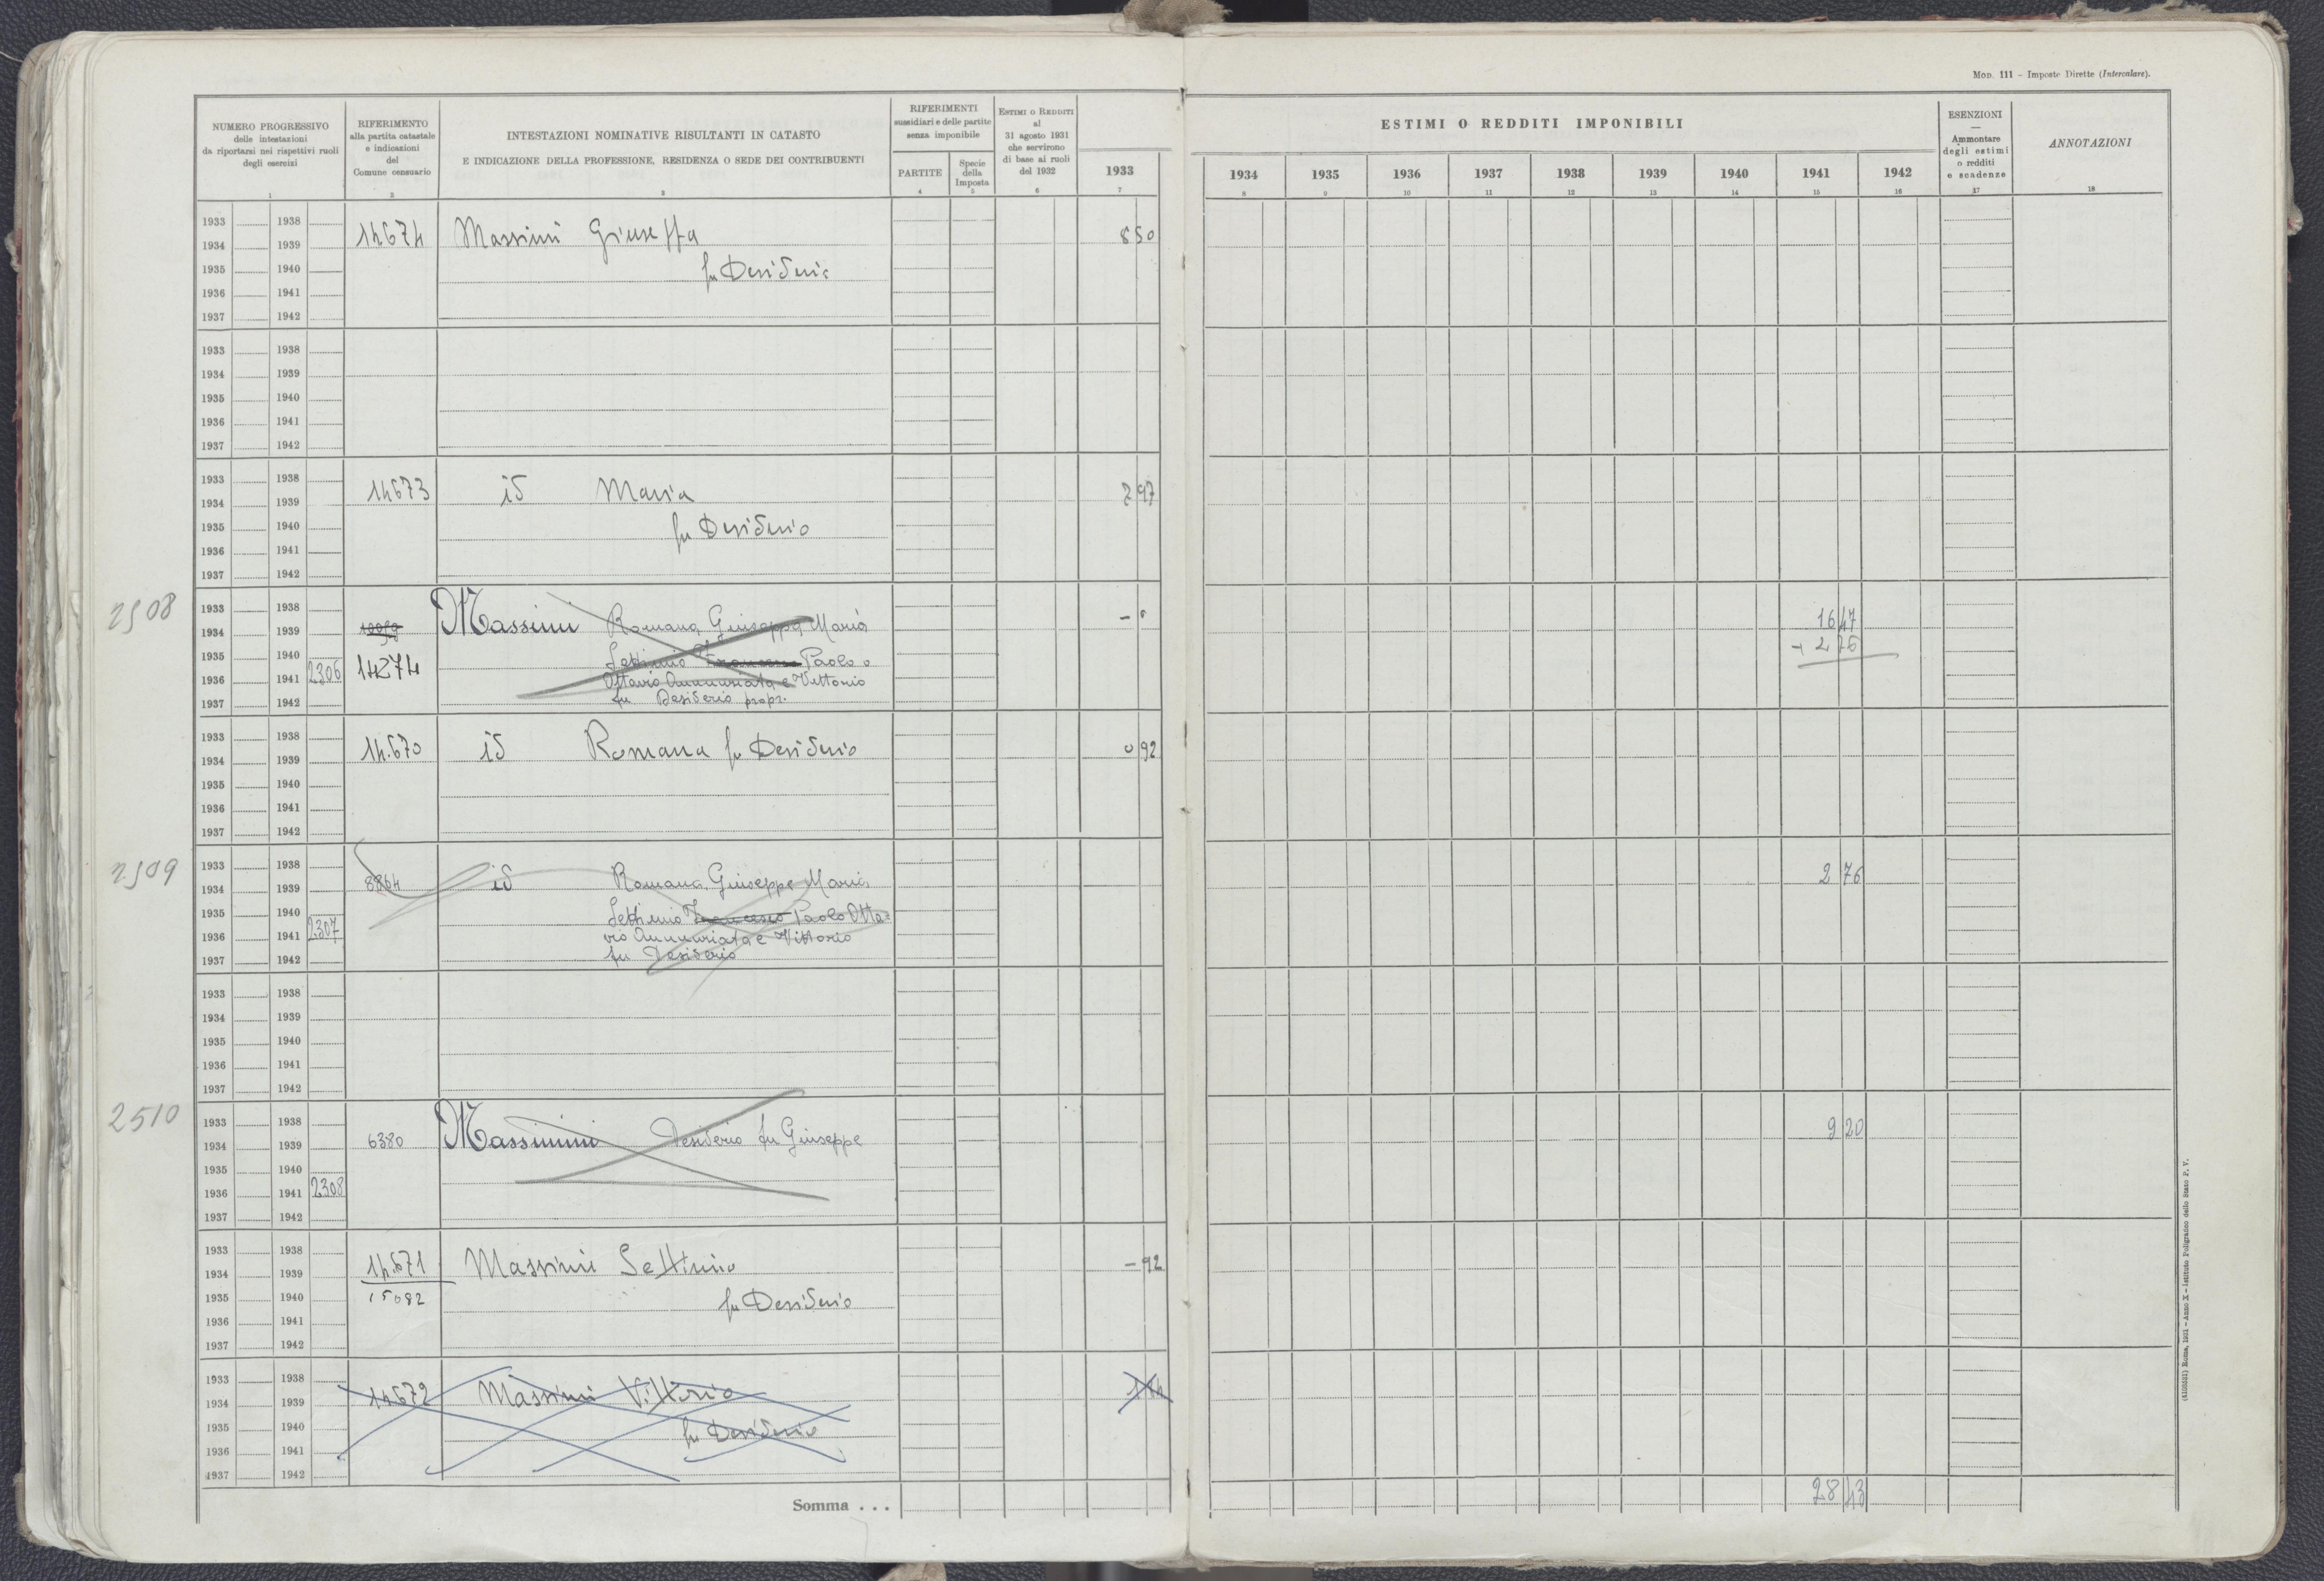 MOD. 111 – Imposte Dirette (Intercalare).
NUMERO PROGRESSIVO
delle intestazioni
da riportarsi nei rispettivi ruoli
degli esercizi
1
RIFERIMENTO
alla partita catastale
e indicazioni
del
Comune censuario
2
INTESTAZIONI NOMINATIVE RISULTANTI IN CATASTO
E INDICAZIONE DELLA PROFESSIONE, RESIDENZA O SEDE DEI CONTRIBUENTI
3
RIFERIMENTI
sussidiari e delle partite
senza imponibile
PARTITE
4
Specie
della
Imposta
5
ESTIMI O REDDITI
al
31 agosto 1931
che servirono
di base ai ruoli
del 1932
6
1933
7
ESTIMI O REDDITI IMPONIBILI
1934 1935 1936 1937 1938 1939 1940 1941 1942
8 9 10 11 12 13 14 15 16
ESENZIONI
—
Ammontare
degli estimi
o redditi
e scadenze
17
ANNOTAZIONI
18
1933 1938
1934 1939 14674 Massimi Giuseppa 850
1935 1940 fu Desiderio
1936 1941
1937 1942
1933 1938
1934 1939
1935 1940
1936 1941
1937 1942
1933 1938
1934 1939 14673 id Maria 297
1935 1940 fu Desiderio
1936 1941
1937 1942
2508
1933 1938 1647
1934 1939 Massimi Romana, Giuseppa, Maria
1935 1940 Settimio Francesco Paolo + 276
1936 1941 2306 14274 Ottavio Annunziata e Vittorio
1937 1942 fu Desiderio propr.
1933 1938
1934 1939 14.670 id Romana fu Desiderio 0 92
1935 1940
1936 1941
1937 1942
2509
1933 1938
1934 1939 8864 id Romana, Giuseppe Maria 2 76
1935 1940 Settimio Francesco Paolo Otta=
1936 1941 2307 vio Annunziata e Vittorio
1937 1942 fu Desiderio
1933 1938
1934 1939
1935 1940
1936 1941
1937 1942
2510
1933 1938
1934 1939 6380 Massimini Desiderio fu Giuseppe 9 20
1935 1940
1936 1941 2308
1937 1942
1933 1938
1934 1939 14.671 Massimi Settimio – 92
1935 1940 15082 fu Desiderio
1936 1941
1937 1942
1933 1938
1934 1939 14672 Massimi Vittorio
1935 1940 fu Desiderio
1936 1941
1937 1942
Somma . . . 28 43
(4100531) Roma, 1931 – Anno X – Istituto Poligrafico dello Stato P. V.